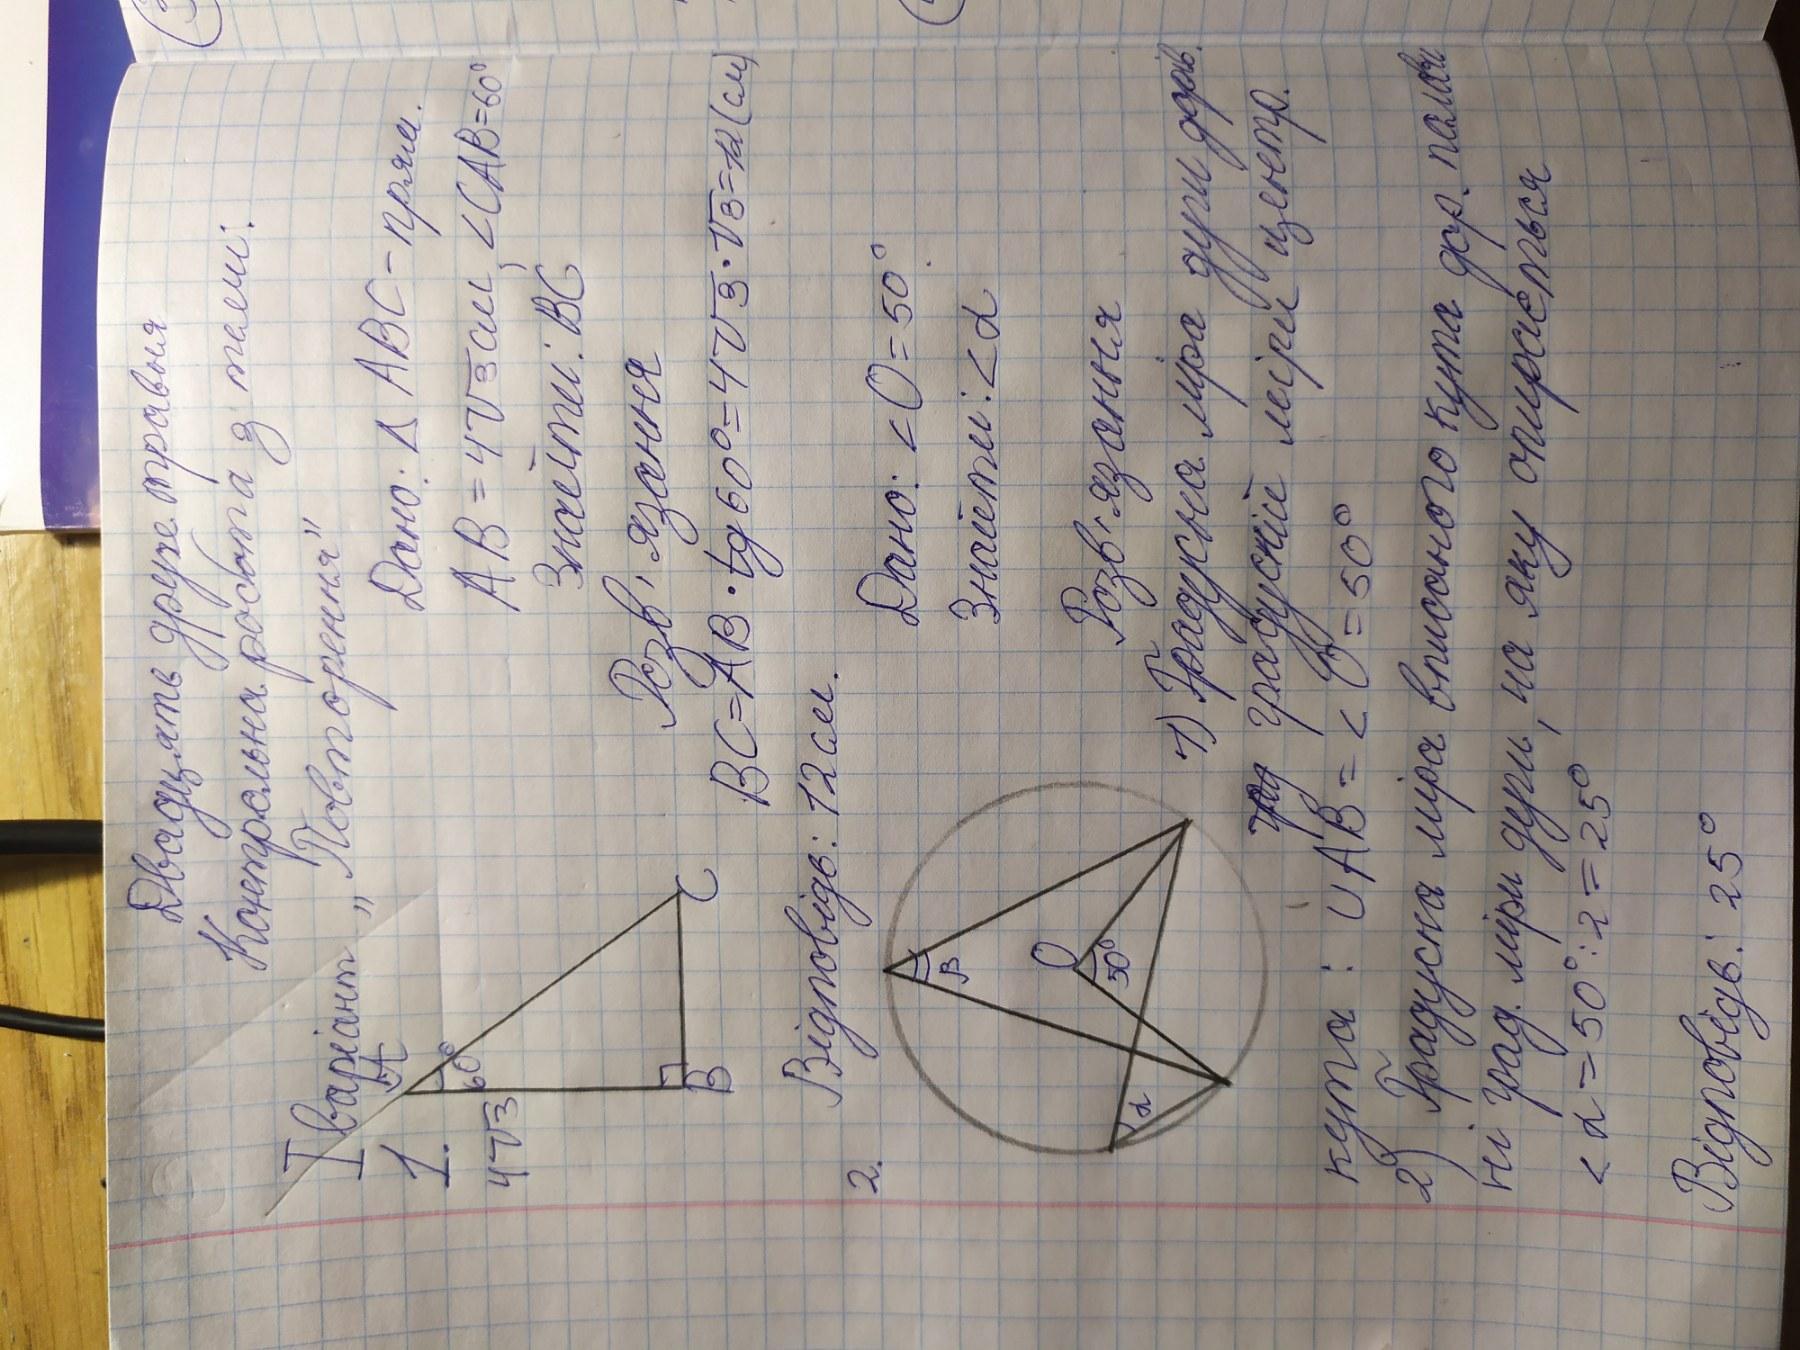 Двадцять друге травня
Контрольна робота з теми:
I варіант „Повторення"
1. Дано: Δ ABC – прям.
AB = 4√3 см <CAB=60°
Знайти: BC
A 60° 4√3 B C
Розв'язання
BC=AB·tg60°=4√3·√3=12(см)
Відповідь: 12 см.
2. Дано: <O=50°
Знайти: <α
β O 50° α
Розв'язання
1) Градусна міра дуги дорів.
град градусній мірі центр.
кута: ∪AB = <O = 50°
2) Градусна міра вписаного кута дор. полови
ні град. міри дуги, на яку опирається
<α = 50°:2 = 25°
Відповідь: 25°